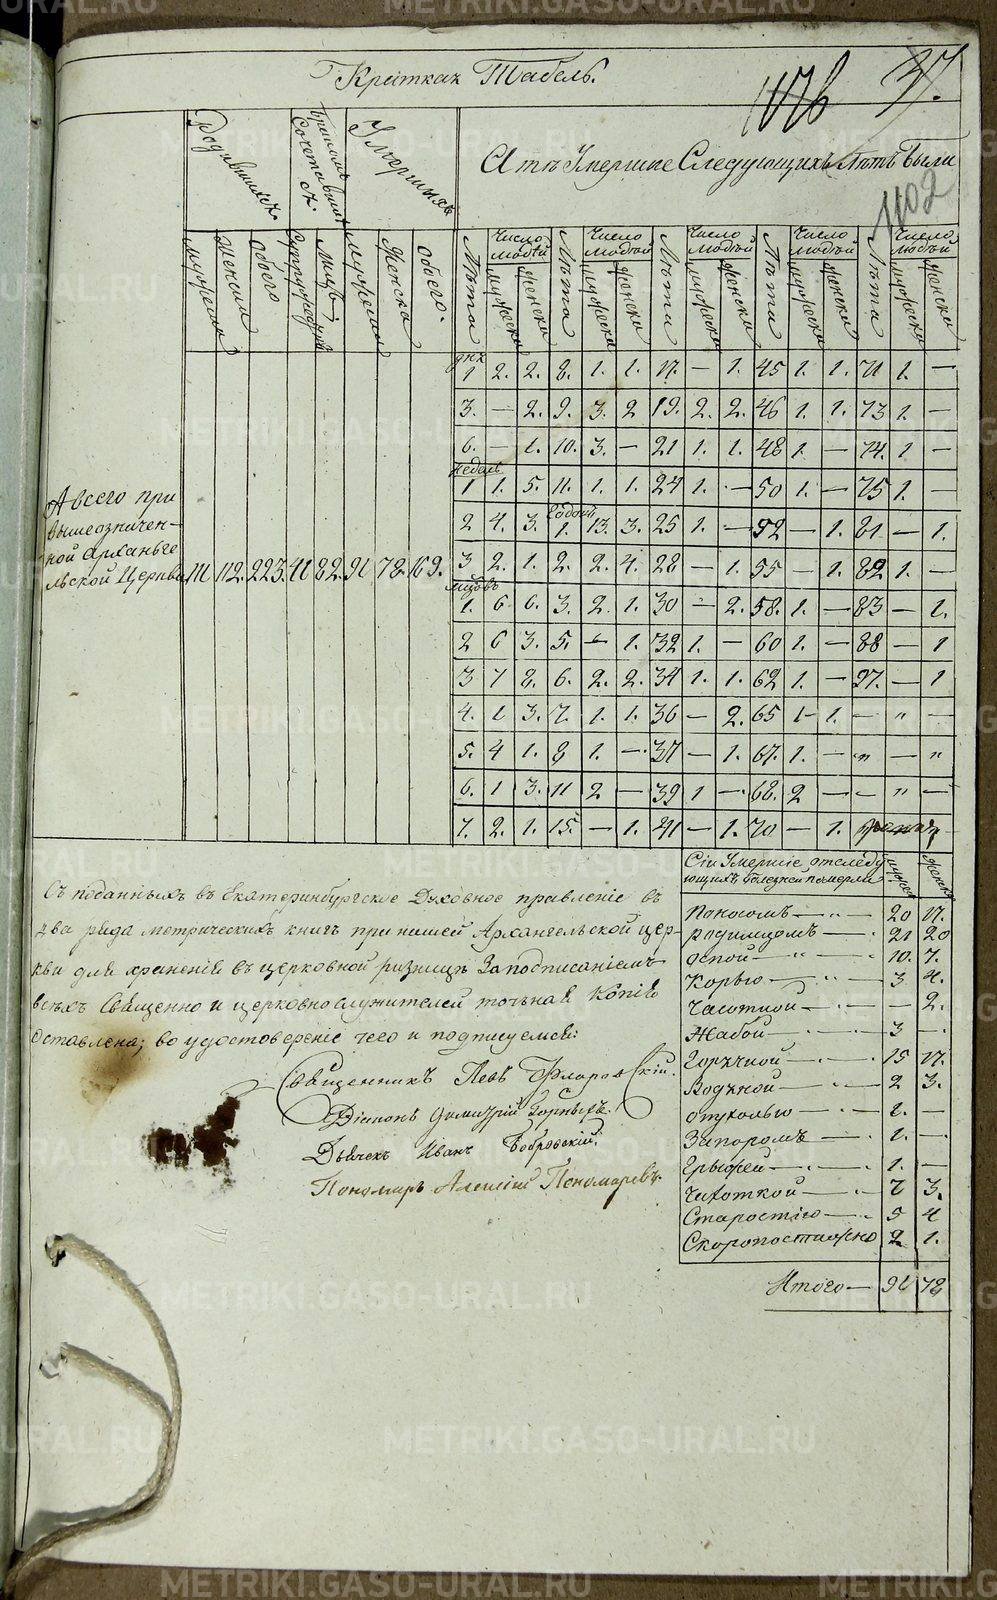 Краткая Табель.
1076
37.
1102
Родившихся.
Бракомъ Сочетавшихся.
Умершихъ
А тѣ Умершие Следующихъ Лѣтъ были
мужеска женска Обоего Супружествъ Лицъ мужеска Женска Обоего.
Лѣта Число людей мужеска женска Лѣта Число людей мужеска женска Лѣта Число людей мужеска женска Лѣта Число людей мужеска женска Лѣта Число людей мужеска женска
дня
1 2. 2. 8. 1. 1. 17. — 1. 45 1. 1. 71 1. —
3. — 2. 9. 3. 2 19. 2. 2. 46 1. 1. 73 1. —
6. — 1. 10. 3. — 21 1. 1. 48 1. — 74. 1. —
недель
1 1. 5. 11. 1. 1. 24 1. — 50 1. — 75 1. —
годовъ
2 4. 3. 1. 13. 3. 25 1. — 52 — 1. 81 — 1.
3 2. 1. 2. 2. 4. 28 — 1. 55 — 1. 82 1. —
мцовъ
1. 6 6. 3. 2. 1. 30 — 2. 58. 1. — 83 — 1.
2 6 3. 5. — 1. 32 1. — 60 1. — 88 — 1
3 7 8. 6. 2. 2. 34 1. 1. 62 1. — 97. — 1
4. 1 3. 7. 1. 1. 36 — 2. 65 1 1. — " —
5. 4 1. 8 1. — 37 — 1. 67. 1. — " — "
6. 1 3. 11 2 — 39 1 — 68. 2 — — " —
7. 2. 1. 15. — 1. 41 — 1. 70 — 1.
А всего при
вышеозначен-
ной Арханьге
льской Церкви 111 112. 223. 41 82. 91 78. 169.
Съ поданныхъ въ Екатеринбургское Духовное правленіе въ
два ряда метрическихъ книгъ при нашей Архангельской цер-
кви для храненія въ церковной ризницѣ За подписаніемъ
всѣхъ Священно и церковнослужителей точьная Копія
Оставлена; во удостовереніе чего и подписуемся:
Священникъ Левъ Флоровскій.
Діаконъ Димитрій Горныхъ.
Дьячекъ Иванъ Бобровскій.
Пономарь Алексѣй Пономаревъ.
Сіи Умершіе отследу
ющихъ болезней померли мужеска женска
Поносомъ — " — 20 17.
Родимцомъ — " — 21 20
Оспой — " — 10. 7.
Корью — " — 3 4.
Часотной — — 2.
Жабой — 3 —
Горячкой — 15 17.
Водяной — 2 3.
Опухолью — 1. —
Запоромъ — 1. —
Грыжей — 1. —
Чахоткой — 7 3.
Старостію — 5 4
Скоропостижно 2 1.
Итого — 91 78
METRIKI.GASO-URAL.RU